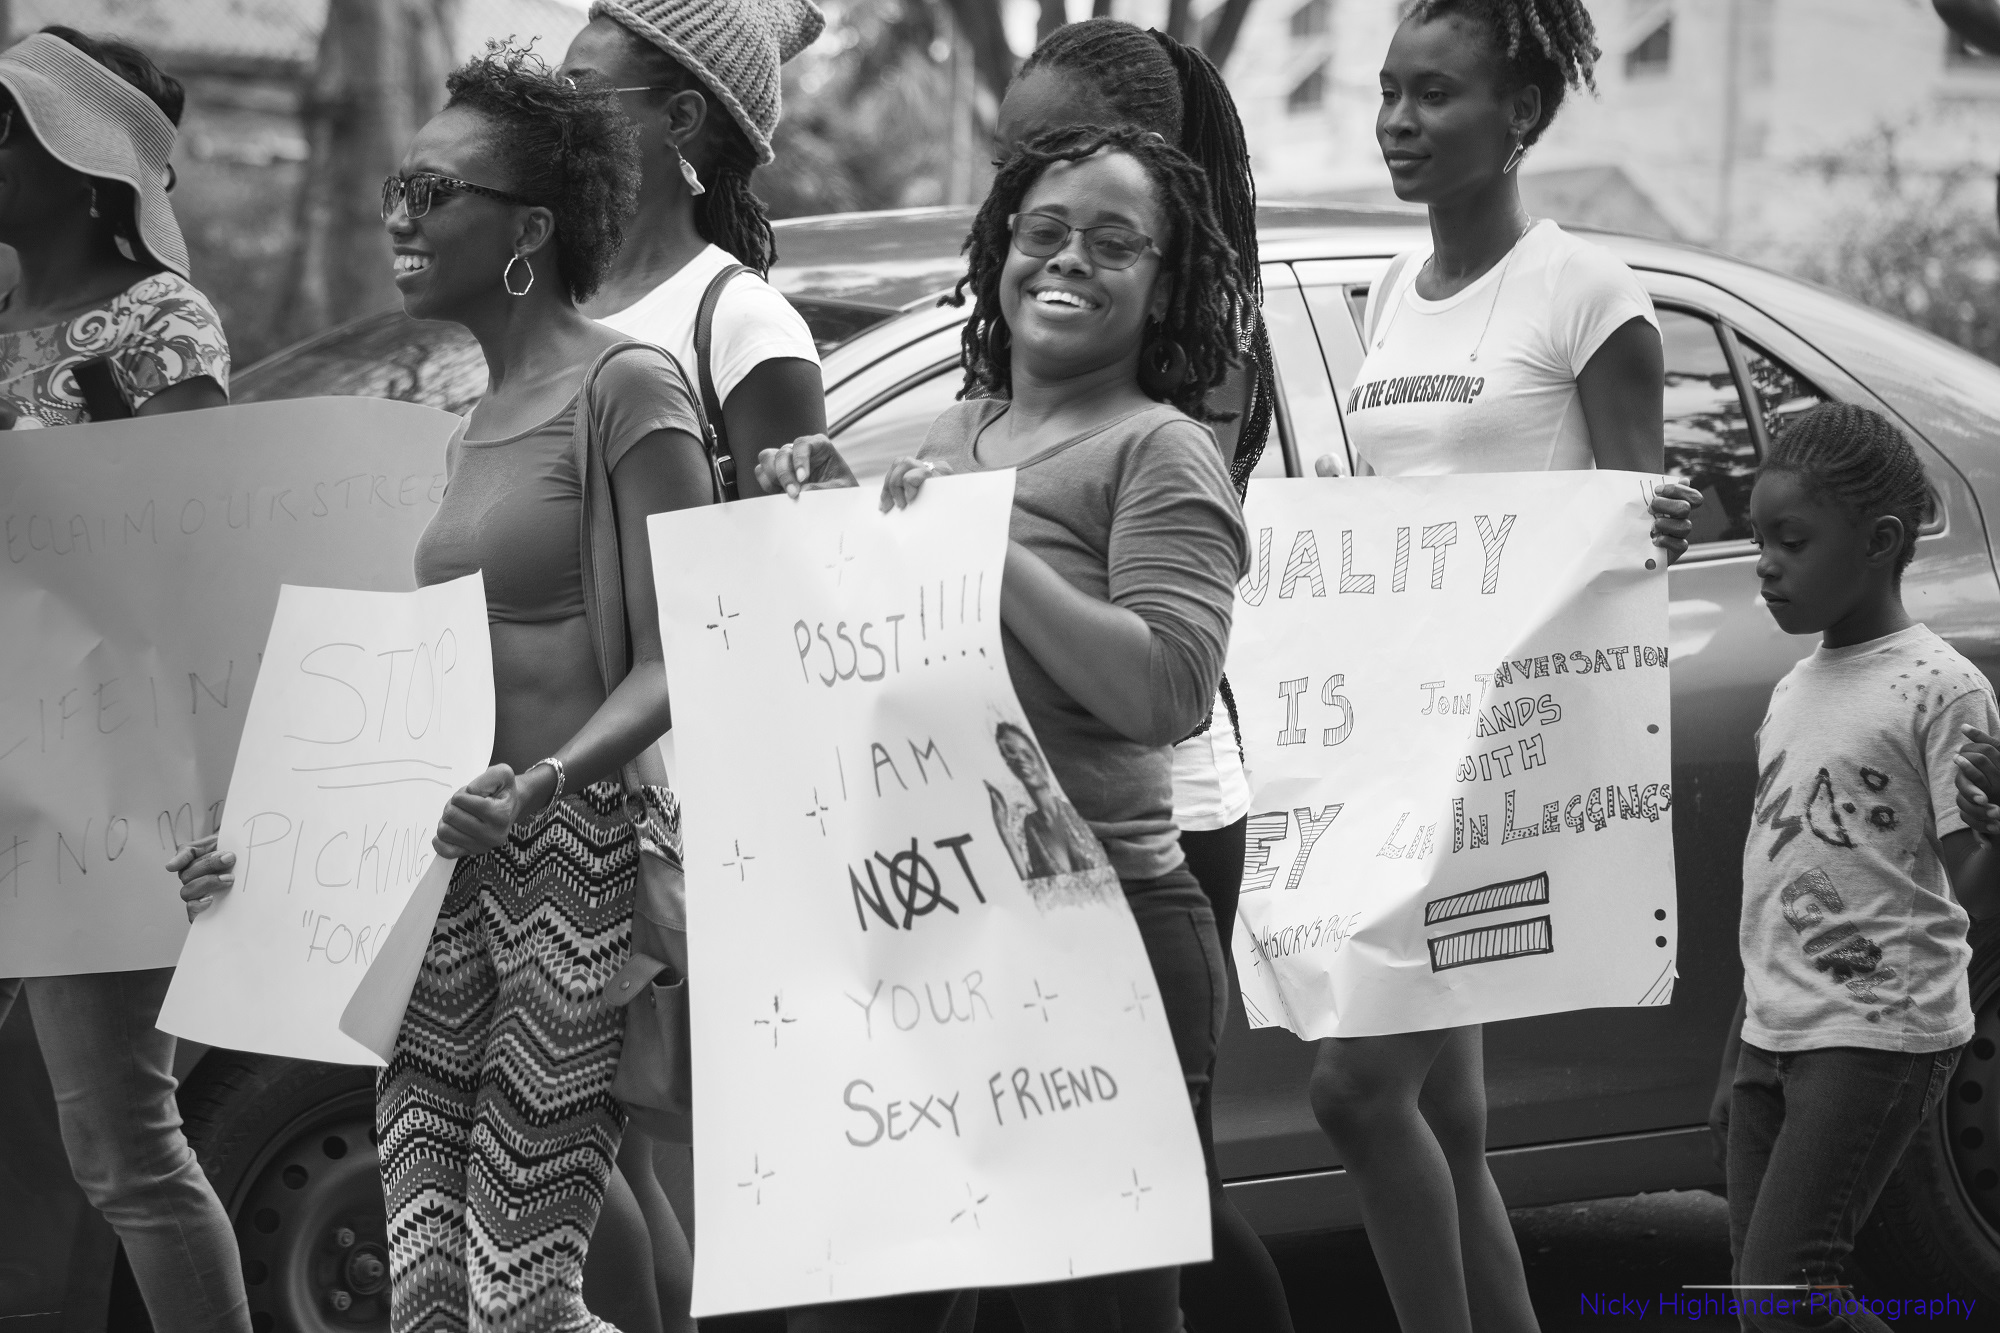 ECLAIM OUR STREE
LIFE IN
#NO
STOP
PICKING
"FORC
PSSST!!!!
I AM
NOT
YOUR
SEXY FRIEND
IN THE CONVERSATION?
UALITY
IS
EY
JOIN
NVERSATION
ANDS
WITH
IN LEGGINGS
HISTORY'S PAGE
GIRL
Nicky Highlander Photography